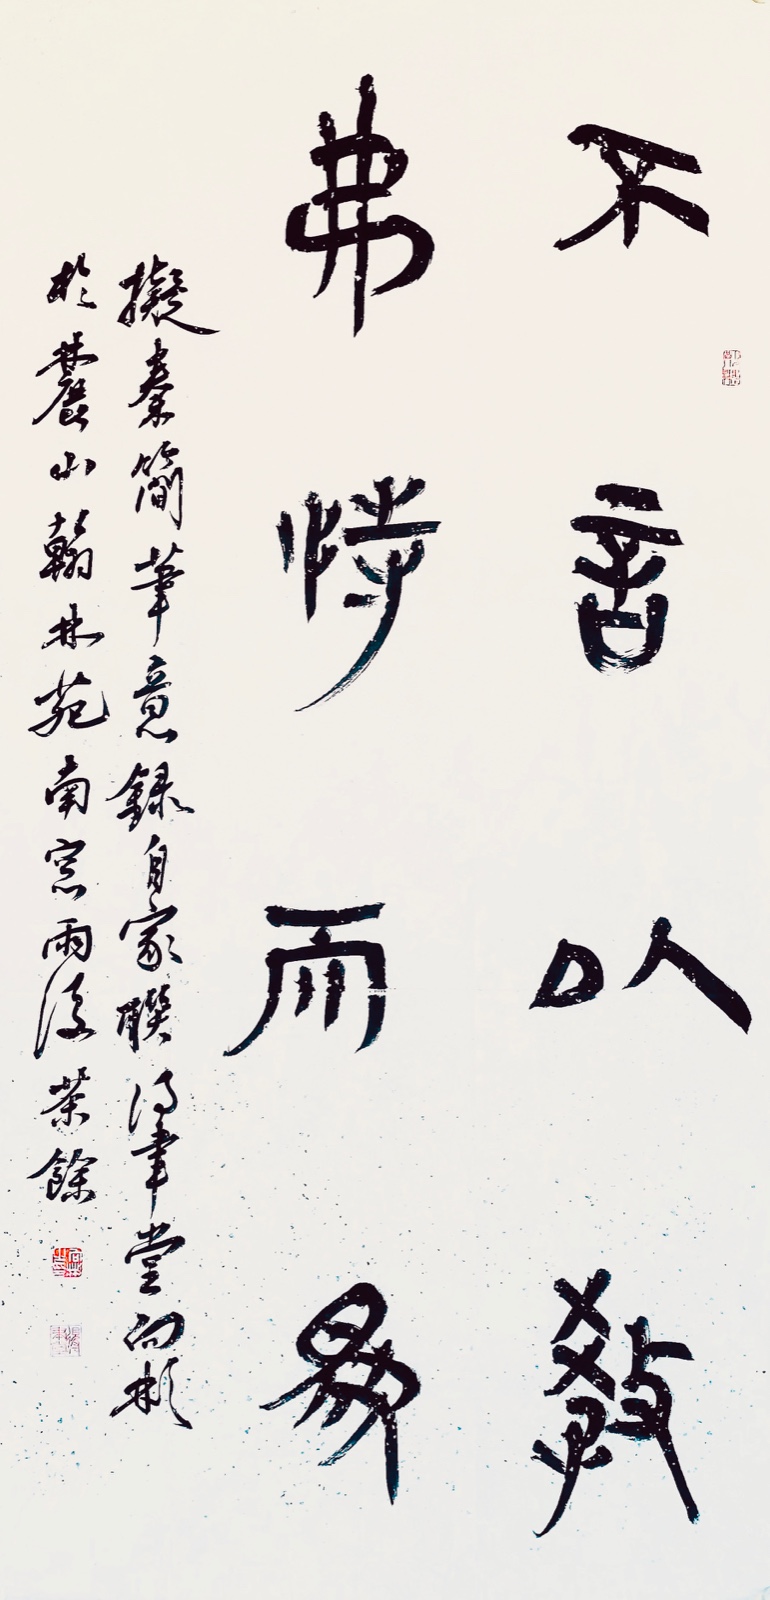 不言以教
弗恃而易
擬秦簡筆意錄自家聯得筆堂向彬
於麓山翰林苑南窓雨後茶餘